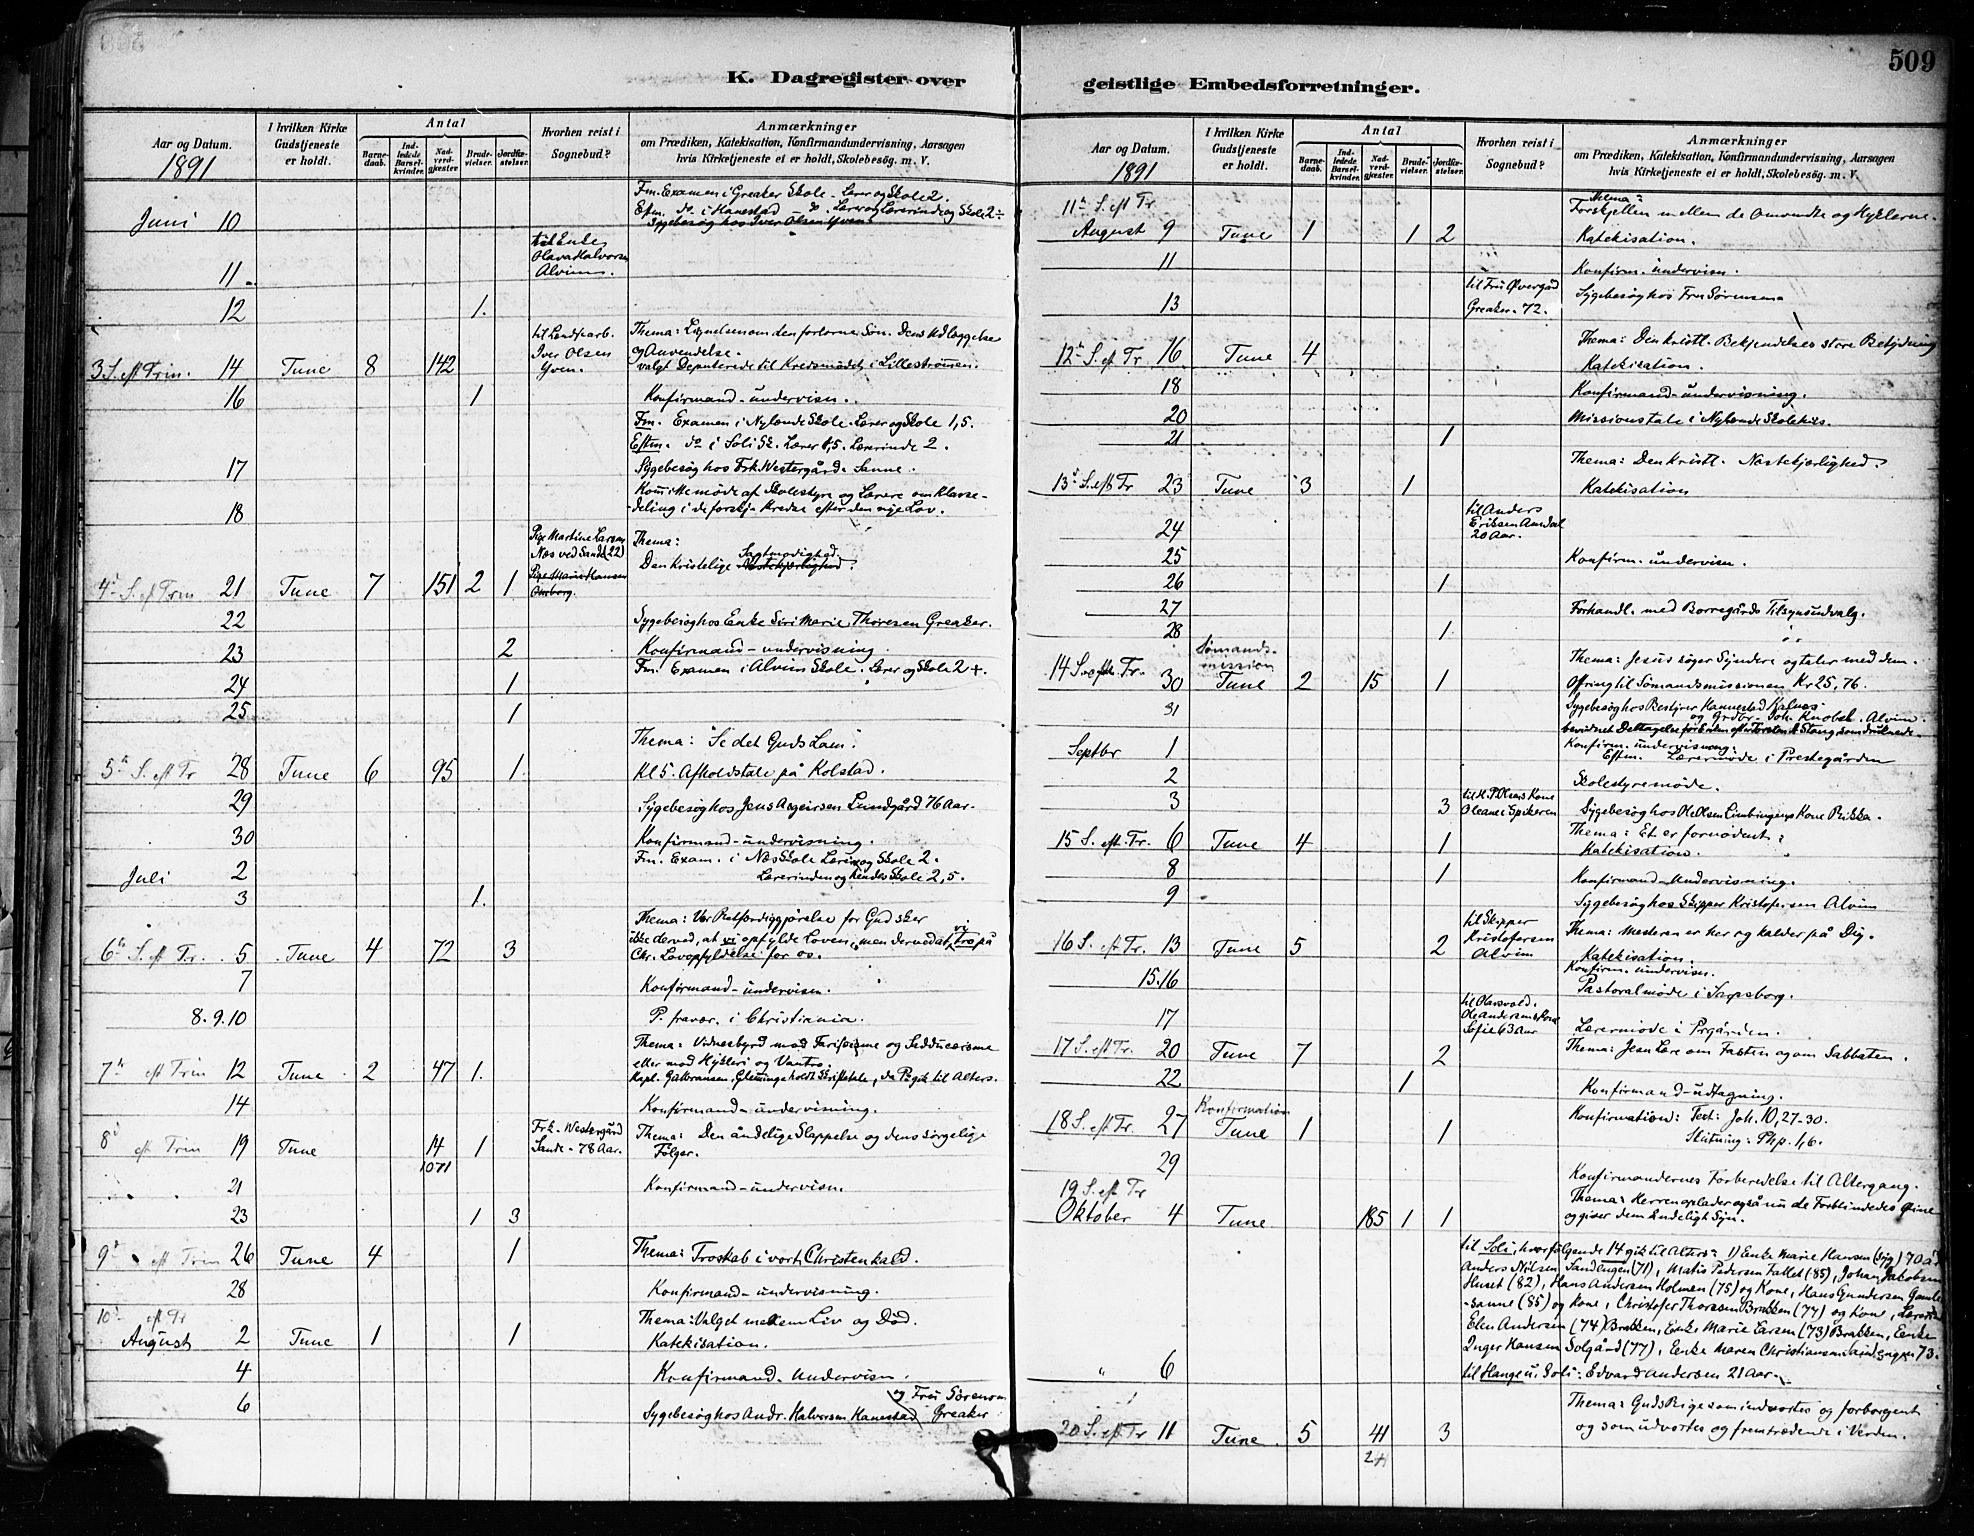 509
K. Dagregister over
geistlige Embedsforretninger.
Aar og Datum.
1891
I hvilken Kirke Gudstjeneste er holdt.
Antal
Barnedaab.
Indledede Barselkvinder.
Nadverdgjester
Brudevielser.
Jordfæstelser.
Hvorhen reist i Sognebud?
Anmærkninger
om Prædiken, Katekisation, Konfirmandundervisning, Aarsagen
hvis Kirketjeneste ei er holdt, Skolebesøg. m. V.
Fm. Examen i Greaker Skole. Lærer og Skole 2.
Eftm. do i Hanestad do Lærer og Lærerinde og Skole 2÷
Juni 10 Sygebesøg hos Iver Olsen Yven
til Enke
Olava Halvorsen
11 Alvim.
12 1.
til Landharb. Thema: Lignelsen om den fortorne Søn. Dens Udlæggelse
Iver Olsen og Anvendelse.
3 S. eft Trin. 14 Tune 8 142 Yven. valgt Deputerede til Kredsmødet i Lillestrømmen.
16 1 Konfirmand-undervisn.
Fm. Examen i Nylende Skole. Lærer og Skole 1,5.
Eftm. do i Soli Sk. Lærer 1,5. Lærerinde 2.
17 Sygebesøg hos Frk. Westergård. Sanne.
Komittemøde af Skolestyre og Lærere om Klasse-
18 -deling i de forskj. Kredse efter den nye Lov.
Pige Martine Larsen Thema:
Næs ved Sande (22) Sagtmodighed.
Den Kristelige Næstekjærlighed.
4de S. eft Trin 21 Tune 7 151 2 1 Pige Marie Hansen
22 Sygebesøg hos Enke Siri Marie Thoresen Greaker.
23 2 Konfirmand-undervisning.
Fm. Examen i Alvim Skole. Lærer og Skole 2+.
24 1
25 1
Thema: "Se det Guds Lam".
5te S. eft Tr 28 Tune 6 95 1. Kl 5. Afholdstale på Kolstad.
29 Sygebesøg hos Jens Aageirsen Lundgård 76 Aar.
30 Konfirmand-undervisning.
Fm. Exam. i Næs Skole Lærer og Skole 2.
Juli 2 Lærerinden og hendes Skole 2,5.
3 1.
Thema: Vor Retfærdiggjørelse for Gud sker
ikke derved, at vi opfylde Loven, men derved at vi tro på
6te S. eft Tr. 5 Tune 4 72 3 Chr. Lovopfyldelse for os.
7 Konfirmand-undervisn.
8. 9. 10 P. fravær. i Christiania.
Thema: Vidnesbyrd mod Farisæisme og Sadducæisme
eller mod Hykleri og Vantro.
7de eft Trin 12 Tune 2 47 1. Kapl. Gulbransen, Glemminge holdt Skriftetale, da P gik til Alters.
14 Konfirmand-undervisning.
Frk. Westergård Thema: Den åndelige Slappelse og dens sørgelige
8de eft Trin 19 Tune 14 1 Sande - 78 Aar. Følger.
1071
21 Konfirmand-undervisn.
23 1 3
9de eft Trin 26 Tune 4 1 Thema: Troskab i vort Christenkald.
28 Konfirmand-undervisning.
10de eft Tr Thema: Valget mellem Liv og Død.
August 2 Tune 1 1 Katekisation.
4 Konfirmand-Undervisn.
og Fru Sørensen
6 Sygebesøg hos Andr. Halvorsen Hanestad Greaker
Aar og Datum.
1891
I hvilken Kirke Gudstjeneste er holdt.
Antal
Barnedaab.
Indledede Barselkvinder.
Nadverdgjester
Brudevielser.
Jordfæstelser.
Hvorhen reist i Sognebud?
Anmærkninger
om Prædiken, Katekisation, Konfirmandundervisning, Aarsagen
hvis Kirketjeneste ei er holdt, Skolebesøg. m. V.
11te S. eft Tr. Thema:
Forskjellen mellem de Omvendte og Hyklerne.
August 9 Tune 1 1 2 Katekisation.
11 Konfirm-undervisn.
til Fru Øvergård Sygebesøg hos Fru Sørensen
13 Greaker - 72.
Thema: Den kristl. Bekjendelses store Betydning
12te S. eft Tr. 16 Tune 4 Katekisation.
18 Konfirmand-undervisning.
20 Missionstale i Nylende Skolehus.
21 1
Thema: Den kristl. Næstekjærlighed.
13de S. eft Tr 23 Tune 3 1 Katekisation
til Anders
24 Eriksen
20 Aar.
25 Konfirm-undervisn.
26 1
27 Forhandl. med Borregårds Tilsynsudvalg.
28 1
Sømands-
mission Thema: Jesus søger Syndere og taler med dem.
14 S. eft Tr. 30 Tune 2 15 1 Offring til Sømandsmissionen Kr 25, 76.
31 Sygebesøg hos Bestyrer Hannestad Kalnes
og Grdbr. Joh. Knobel. Alvim.
Septbr 1 Konfirm. undervisning.
Eftm. Lærermøde i Prestegården
2 Skolestyremøde.
3 3 til H. P. Olsens Kone
Oleane i Spikeren Sygebesøg hos Ole Olsen Kone Rikka.
15 S. eft. Tr. 6 Tune 4 1 Thema: Et er fornødent:
Katekisation.
8 1 Konfirmand-Undervisning.
9 Sygebesøg hos Skipper Kristofersen Alvim
til Skipper
16 S. eft Tr. 13 Tune 5 2 Kristofersen Thema: Mesteren er her og kalder på Dig.
Alvim Katekisation.
Konfirm. undervisn.
15.16 Pastoralmøde i Sarpsborg.
til Olarsvold.
17 Ole Andersens Kone
Sofie 63 Aar Lærermøde i Prgården.
17 S. eft Tr. 20 Tune 7 2 Thema: Jesu Lære om Fasten og om Sabbaten.
22 1 Konfirmand-udtagning.
Konfirmation Konfirmation: Text: Joh. 10,27-30.
18 S. eft Tr. 27 Tune 1 1 Slutning: Php. 1,6.
29 Konfirmandernes Forberedelse til Altergang.
19 S. eft Tr Thema: Herren oplader også nu de Forblindedes Øine
Oktober 4 Tune 185 1 1 og giver dem Åndeligt Syn.
til Soli, hvor følgende 14 gik til Alters: 1) Enke Marie Hansen (syg) 70 år
Anders Nilsen Sandengen (71), Matis Pedersen Fallet (85), Johan Jakobsen
Huset (82), Hans Andersen Holmen (75) og Kone, Hans Gundersen Gamle
-sanne (85) og Kone, Christofer Thoresen Brakken (74) og Kone,
Elen Andersen (74) Brakken, Enke Marie Larsen (73) Brakken, Enke
Inger Hansen Solgård (77), Enke Maren Christiansen Sandengen 73.
" 6 til Hauge u. Soli: Edvard Andersen 21 Aar.
Thema: Guds Rige som indvortes og forborgent
20 S. eft Tr 11 Tune 5 41 3 og som udvortes og fremtrædende i Verden.